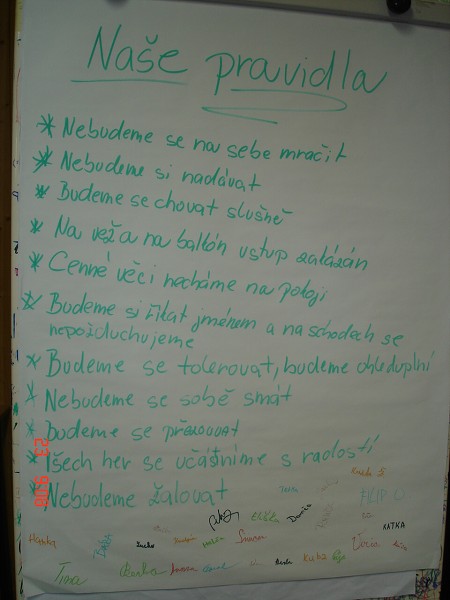 Naše pravidla
* Nebudeme se na sebe mračit
* Nebudeme si nadávat
* Budeme se chovat slušně
* Na věž a na balkón vstup zakázán
* Cenné věci necháme na pokoji
* Budeme si říkat jménem a na schodech se
nepožduchujeme
* Budeme se tolerovat, budeme ohleduplní
* Nebudeme se sobě smát
* Budeme se přezouvat
* Všech her se účastníme s radostí
* Nebudeme žalovat
FILIP
KATKA
Hanka
Kuba
Tina